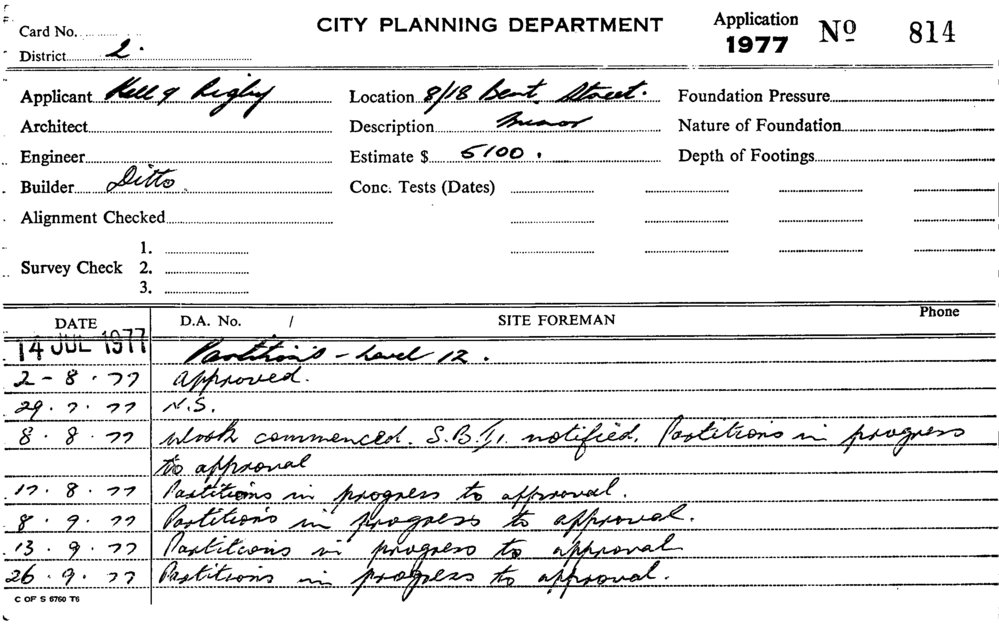 CITY PLANNING DEPARTMENT
Application
1977 Nº 814
Card No.
District 2.
Applicant Kell & Rigby
Location 8/18 Bent Street.
Foundation Pressure
Architect
Description Minor
Nature of Foundation
Engineer
Estimate $ 5100.
Depth of Footings
Builder Ditto.
Conc. Tests (Dates)
Alignment Checked
Survey Check 1.
2.
3.
DATE D.A. No. / SITE FOREMAN Phone
14 JUL 1977 Partitions - Level 12.
2-8.77 Approved.
29.7.77 N.S.
8.8.77 Work commenced. S.B.I. notified. Partitions in progress
to approval
17.8.77 Partitions in progress to approval.
8.9.77 Partitions in progress to approval.
13.9.77 Partitions in progress to approval
26.9.77 Partitions in progress to approval.
C OF S 6760 T6